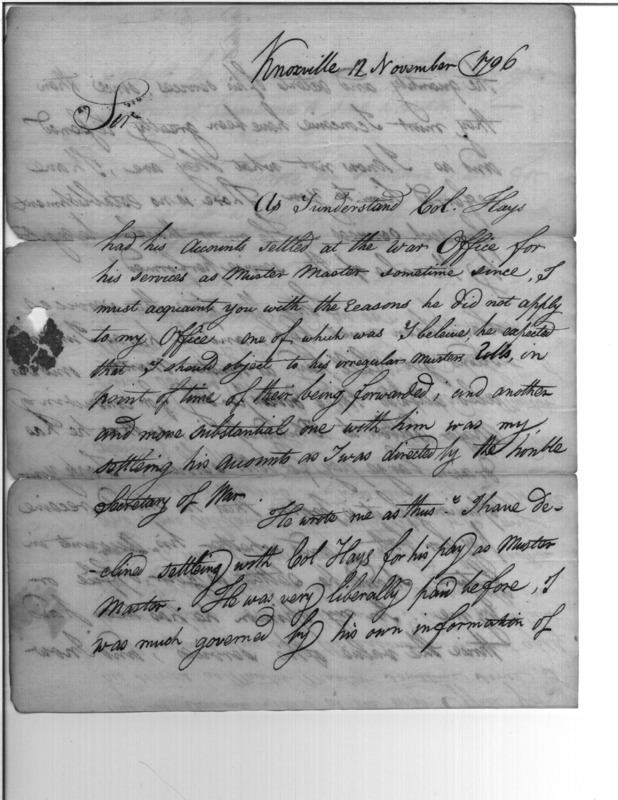 Knoxville 12 November 1796
Sir
As I understand Col. Hays
had his Accounts settled at the War Office for
his services as Muster Master sometime since, I
must acquaint you with the reasons he did not apply
to my Office one of which was I beleive, he expected
that I should object to his irregular Musters Rolls, in
point of time of their being forwarded; and another
and more substantial one with him was my
settleing his Accounts as I was directed by the honble
Secretary of War.
He wrote me as thus "I have de-
-clined settleing with Col Hays for his pay as Muster
Master. He was very liberally paid before, I
was much governed by his own information of